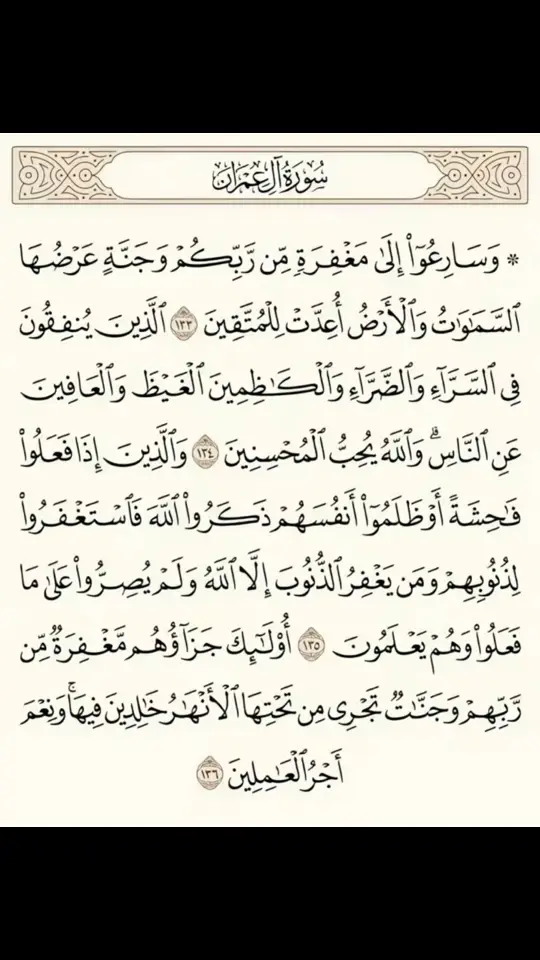 سُورَةُ آلِ عِمْرَانَ
* وَسَارِعُوٓا۟ إِلَىٰ مَغْفِرَةٍ مِّن رَّبِّكُمْ وَجَنَّةٍ عَرْضُهَا
ٱلسَّمَٰوَٰتُ وَٱلْأَرْضُ أُعِدَّتْ لِلْمُتَّقِينَ ١٣٣ ٱلَّذِينَ يُنفِقُونَ
فِى ٱلسَّرَّآءِ وَٱلضَّرَّآءِ وَٱلْكَٰظِمِينَ ٱلْغَيْظَ وَٱلْعَافِينَ
عَنِ ٱلنَّاسِ ۗ وَٱللَّهُ يُحِبُّ ٱلْمُحْسِنِينَ ١٣٤ وَٱلَّذِينَ إِذَا فَعَلُوا۟
فَٰحِشَةً أَوْ ظَلَمُوٓا۟ أَنفُسَهُمْ ذَكَرُوا۟ ٱللَّهَ فَٱسْتَغْفَرُوا۟
لِذُنُوبِهِمْ وَمَن يَغْفِرُ ٱلذُّنُوبَ إِلَّا ٱللَّهُ وَلَمْ يُصِرُّوا۟ عَلَىٰ مَا
فَعَلُوا۟ وَهُمْ يَعْلَمُونَ ١٣٥ أُو۟لَٰٓئِكَ جَزَآؤُهُم مَّغْفِرَةٌ مِّن
رَّبِّهِمْ وَجَنَّٰتٌ تَجْرِى مِن تَحْتِهَا ٱلْأَنْهَٰرُ خَٰلِدِينَ فِيهَا ۚ وَنِعْمَ
أَجْرُ ٱلْعَٰمِلِينَ ١٣٦